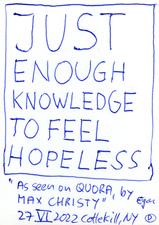 JUST
ENOUGH
KNOWLEDGE
TO FEEL
HOPELESS
"As seen on QUORA, by
MAX CHRISTY"
27.VI 2022 Cottekill, NY